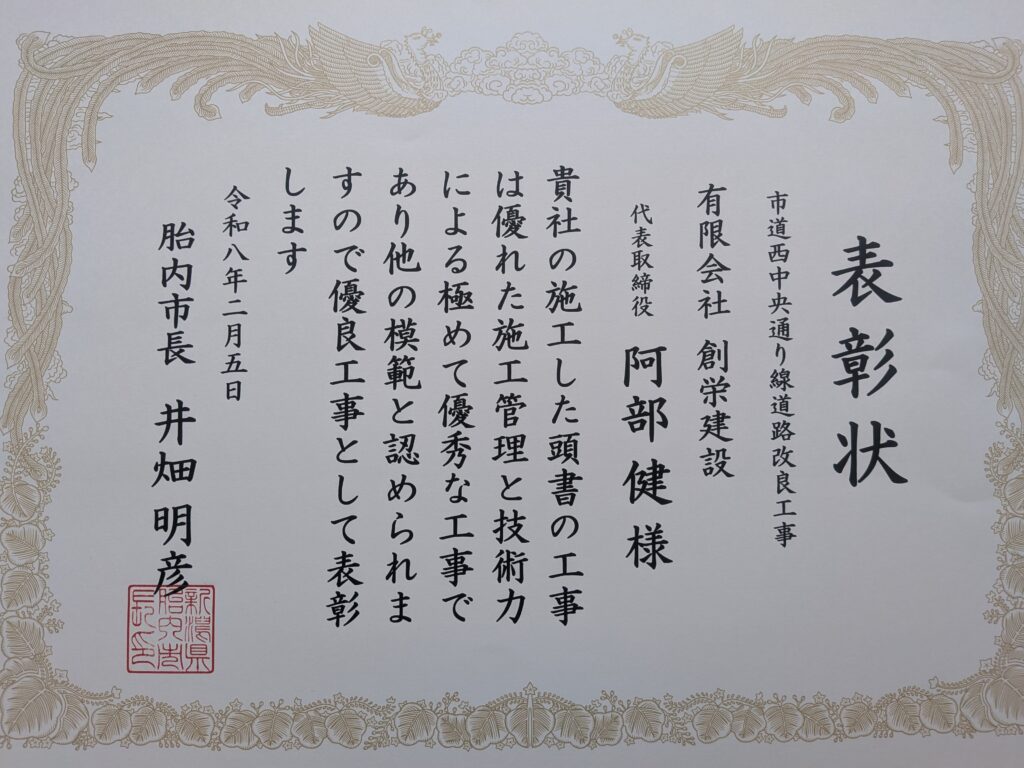 表彰状
市道西中央通り線道路改良工事
有限会社 創栄建設
代表取締役 阿部 健 様
貴社の施工した頭書の工事
は優れた施工管理と技術力
による極めて優秀な工事で
あり他の模範と認められま
すので優良工事として表彰
します
令和八年二月五日
胎内市長 井畑 明彦
新潟県
胎内市
長印